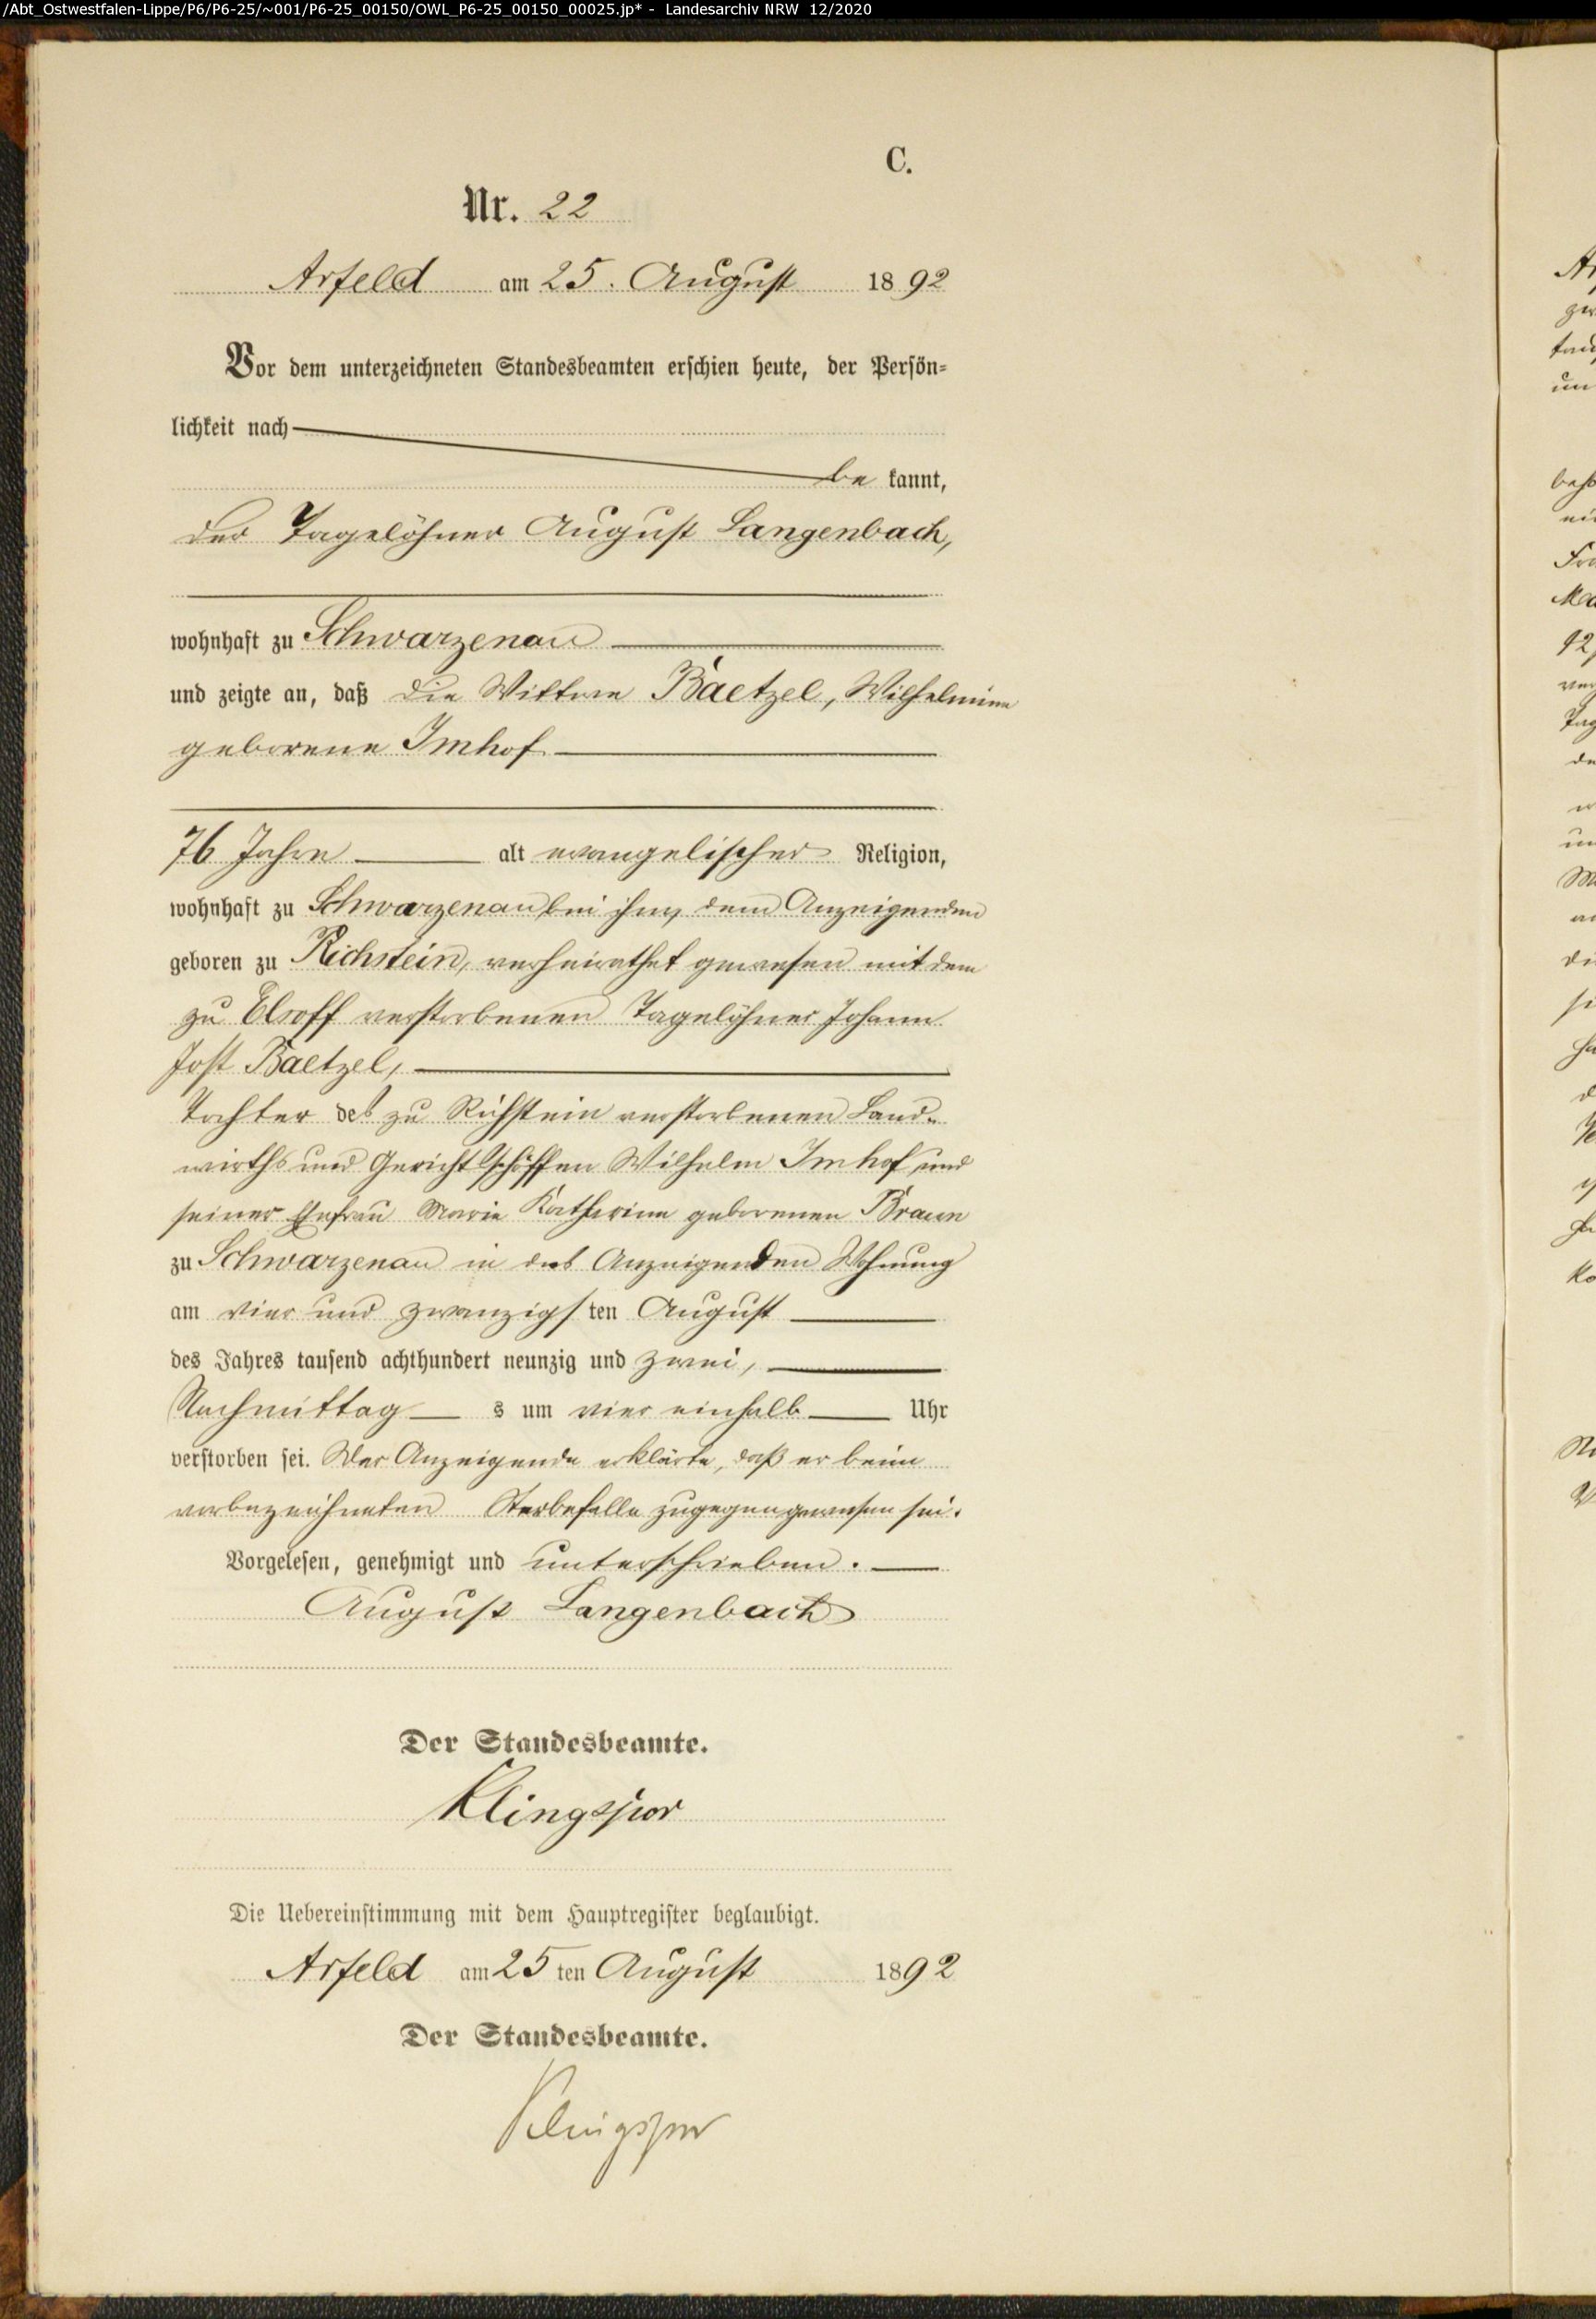 /Abt_Ostwestfalen-Lippe/P6/P6-25/~001/P6-25_00150/OWL_P6-25_00150_00025.jp* - Landesarchiv NRW 12/2020
C.
Nr. 22
Arfeld am 25. August 1892
Vor dem unterzeichneten Standesbeamten erschien heute, der Persön-
lichkeit nach
be kannt,
der Tagelöhner August Langenbach,
wohnhaft zu Schwarzenau
und zeigte an, daß die Wittwe Baetzel, Wilhelmine
geborene Imhof
76 Jahre alt evangelischer Religion,
wohnhaft zu Schwarzenau bei ihm, dem Anzeigenden
geboren zu Richstein, verheirathet gewesen mit dem
zu Elsoff verstorbenen Tagelöhner Johann
Jost Baetzel,
Tochter des zu Richstein verstorbenen Land-
wirths und Gerichtsschöffen Wilhelm Imhof und
seiner Ehefrau Marie Katharine geborenen Braun
zu Schwarzenau in des Anzeigenden Wohnung
am vier und zwanzigsten August
des Jahres tausend achthundert neunzig und zwei,
Nachmittags um vier einhalb Uhr
verstorben sei. Der Anzeigende erklärte, daß er beim
vorbezeichneten Sterbefalle zugegen gewesen sei.
Vorgelesen, genehmigt und unterschrieben.
August Langenbach
Der Standesbeamte.
Klingspor
Die Uebereinstimmung mit dem Hauptregister beglaubigt.
Arfeld am 25ten August 1892
Der Standesbeamte.
Klingspor